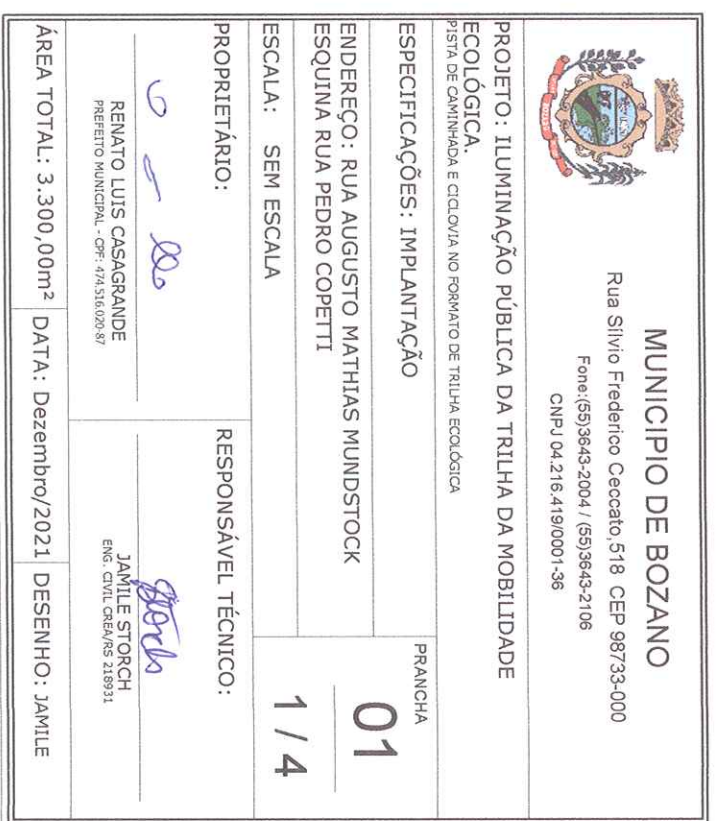 MUNICIPIO DE BOZANO
Rua Sílvio Frederico Ceccato,518 CEP 98733-000
Fone:(55)3643-2004 / (55)3643-2106
CNPJ 04.216.419/0001-36
PROJETO: ILUMINAÇÃO PÚBLICA DA TRILHA DA MOBILIDADE
ECOLÓGICA.
PISTA DE CAMINHADA E CICLOVIA NO FORMATO DE TRILHA ECOLÓGICA
ESPECIFICAÇÕES: IMPLANTAÇÃO
PRANCHA
01
1 / 4
ENDEREÇO: RUA AUGUSTO MATHIAS MUNDSTOCK
ESQUINA RUA PEDRO COPETTI
ESCALA: SEM ESCALA
PROPRIETÁRIO:
RENATO LUIS CASAGRANDE
PREFEITO MUNICIPAL - CPF: 474.516.020-87
RESPONSÁVEL TÉCNICO:
JAMILE STORCH
ENG. CIVIL CREA/RS 218931
ÁREA TOTAL: 3.300,00m²
DATA: Dezembro/2021
DESENHO: JAMILE